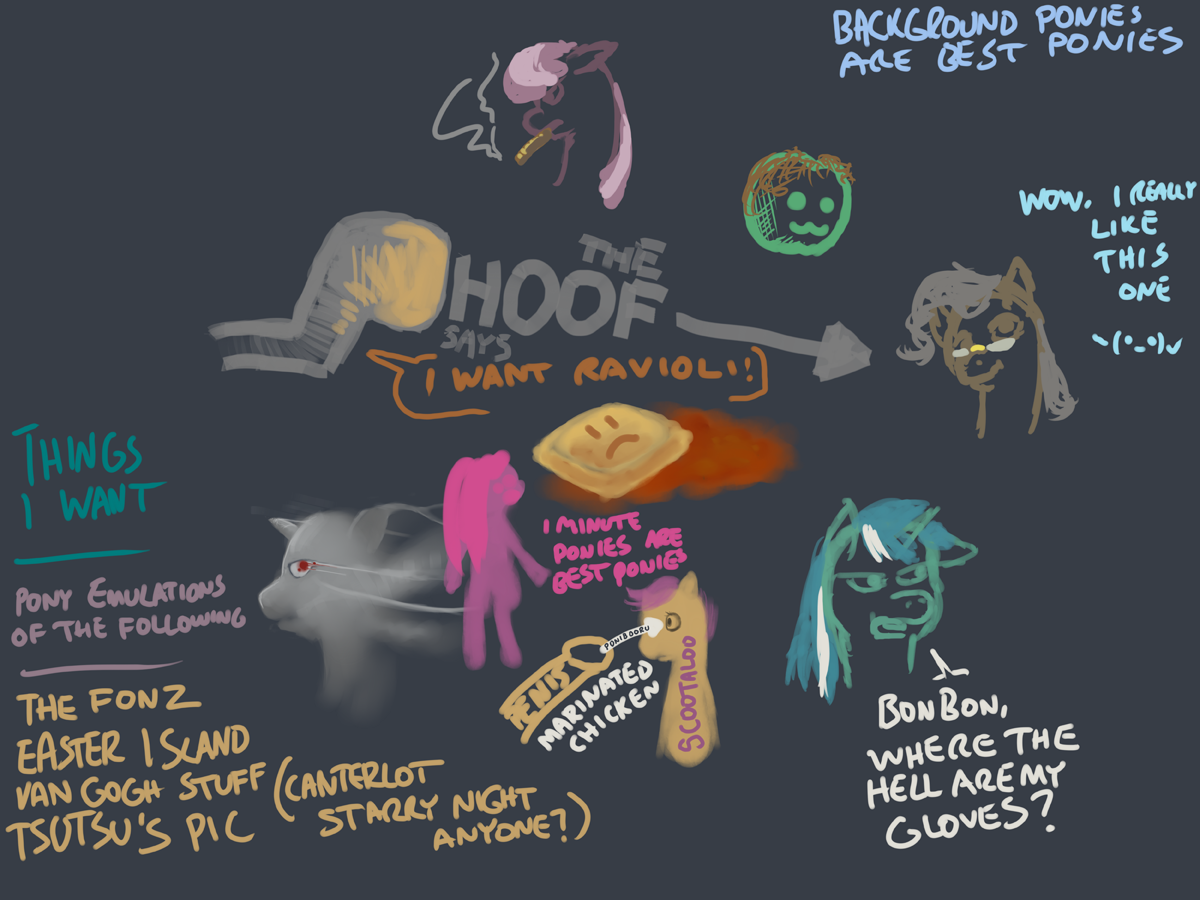 BACKGROUND PONIES
ARE BEST PONIES
WOW. I REALLY
LIKE
THIS
ONE
THE
HOOF
SAYS
I WANT RAVIOLI!
THINGS
I WANT
PONY EMULATIONS
OF THE FOLLOWING
THE FONZ
EASTER ISLAND
VAN GOGH STUFF (CANTERLOT
STARRY NIGHT
ANYONE?)
TSUTSU'S PIC
1 MINUTE
PONIES ARE
BEST PONIES
PONIBOORU
PENIS
MARINATED
CHICKEN
SCOOTALOO
BONBON,
WHERE THE
HELL ARE MY
GLOVES?